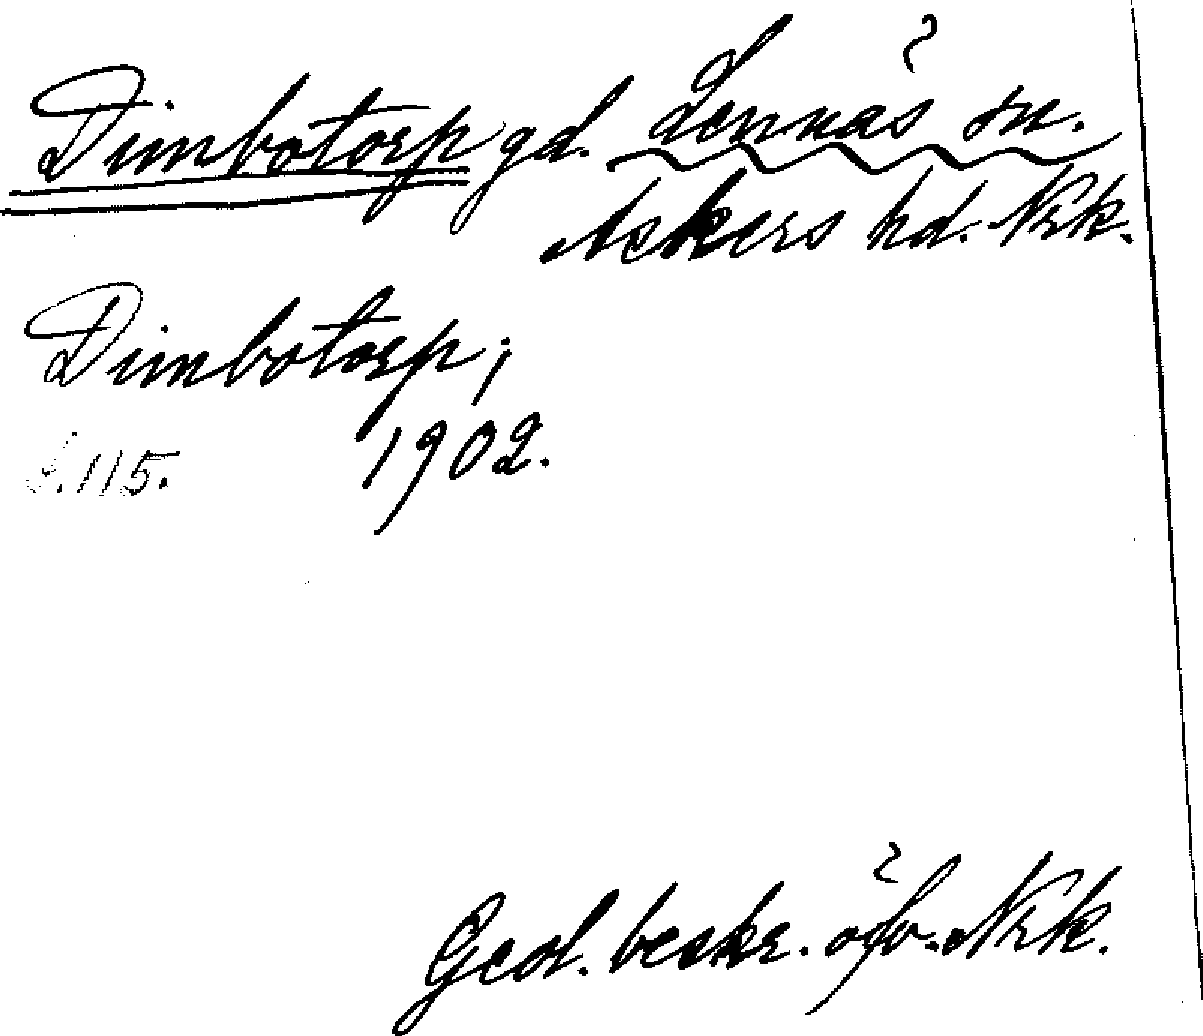 Dimbotorp gd. Lennäs sn.
Askers hd. Nrk.
Dimbotorp;
S. 115. 1902.
Geol. beskr. öfv. Nrk.